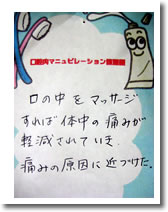 口腔内マニュピレーション
口の中をマッサージ
すれば体中の痛みが
軽減されていき
痛みの原因に近づけた。